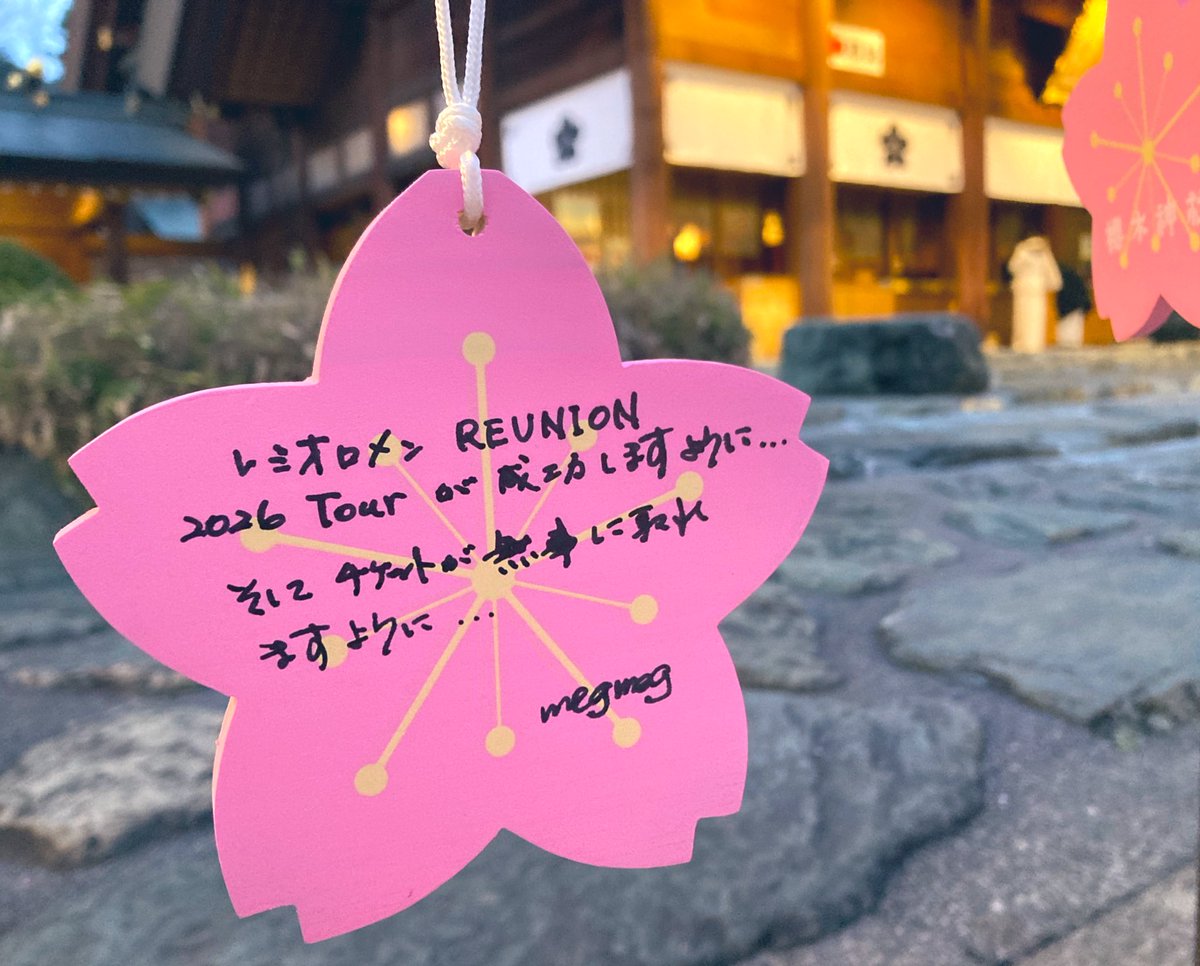 レミオロメン REUNION
2026 Tour が成功しますように...
そして チケットが無事に取れ
ますように...
megmog
櫻木神社